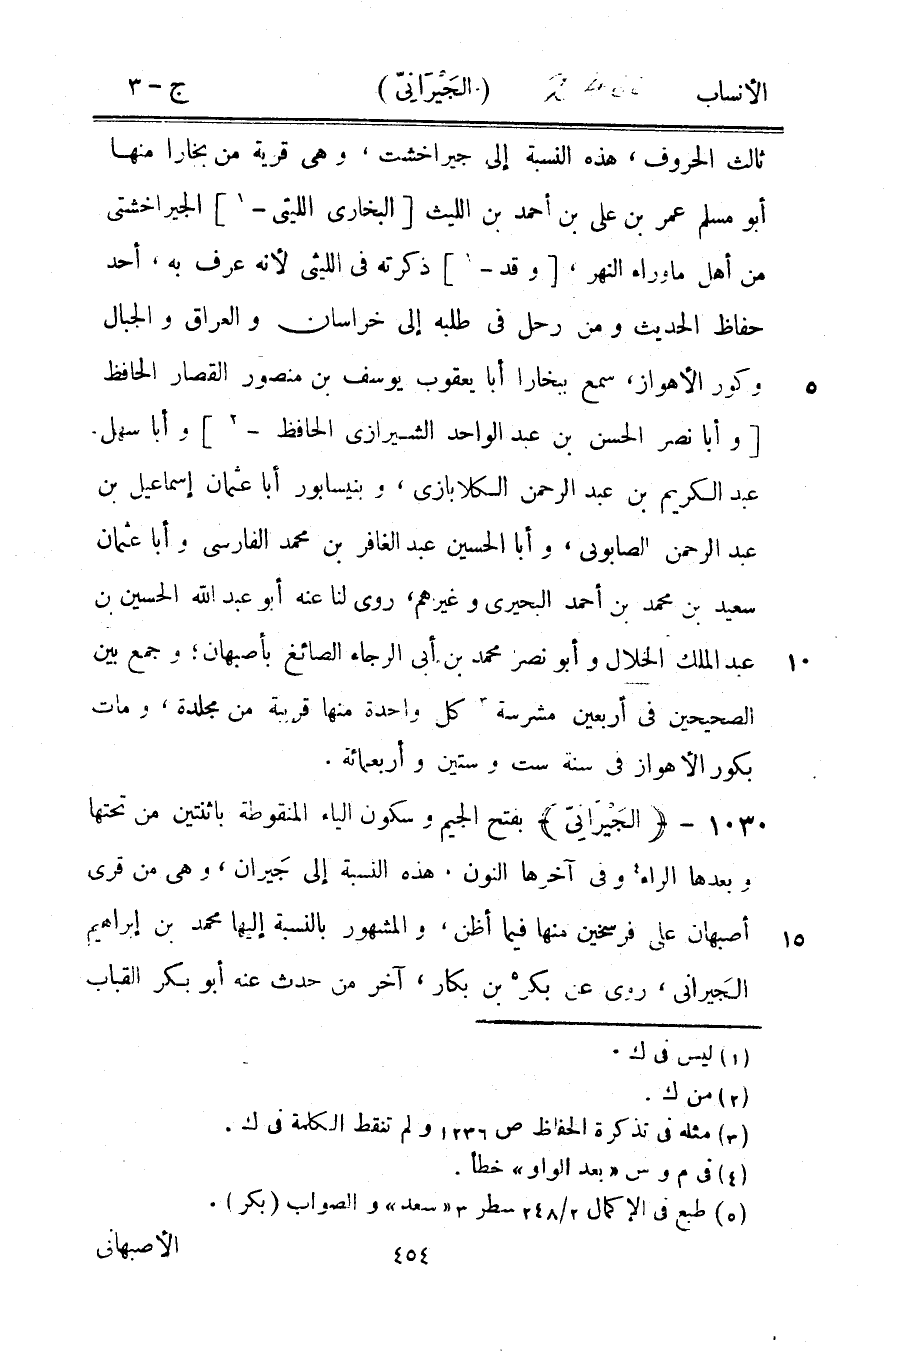 الأنساب (الجَيْرَانىّ) ج - ٣
ثالث الحروف، هذه النسبة إلى جيراخشت، و هى قرية من بخارا منهـا
أبو مسلم عمر بن على بن أحمد بن الليث [ البخارى الليثى - ١ ] الجيراخشتى
من أهل ماوراء النهر، [ و قد - ١ ] ذكرته فى الليثى لأنه عرف به، أحد
حفاظ الحديث و من رحل فى طلبه إلى خراسان و العراق و الجبال
و كور الأهواز، سمع ببخارا أبا يعقوب يوسف بن منصور القصار الحافظ ٥
[ و أبا نصر الحسن بن عبد الواحد الشيرازى الحافظ - ٢ ] و أبا سهل
عبد الكريم بن عبد الرحمن الكلاباذى، و بنيسابور أبا عثمان إسماعيل بن
عبد الرحمن الصابونى، و أبا الحسين عبد الغافر بن محمد الفارسى و أبا عثمان
سعيد بن محمد بن أحمد البحيرى و غيرهم، روى لنا عنه أبو عبد الله الحسين بن
عبد الملك الخلال و أبو نصر محمد بن أبى الرجاء الصائغ بأصبهان؛ و جمع بين ١٠
الصحيحين فى أربعين مشرسة ٣ كل واحدة منها قريبة من مجلدة، و مات
بكور الأهواز فى سنة ست و ستين و أربعمائة .
١٠٣٠ - ﴿ الجَيْرَانىّ ﴾ بفتح الجيم و سكون الياء المنقوطة باثنتين من تحتها
و بعدها الراء ٤ و فى آخرها النون . هذه النسبة إلى جَيران، و هى من قرى
أصبهان على فرسخين منها فيما أظن، و المشهور بالنسبة إليها محمد بن إبراهيم ١٥
الجَيرانى، روى عن بكر ٥ بن بكار، آخر من حدث عنه أبو بكر القباب
(١) ليس فى ك .
(٢) من ك .
(٣) مثله فى تذكرة الحفاظ ص ١٢٣٦ و لم تنقط الكلمة فى ك .
(٤) فى م و س «بعد الواو» خطأ .
(٥) طبع فى الإكمال ٢/ ٢٤٨ سطر ٣ «سعد» و الصواب (بكر) .
٤٥٤ الأصبهانى